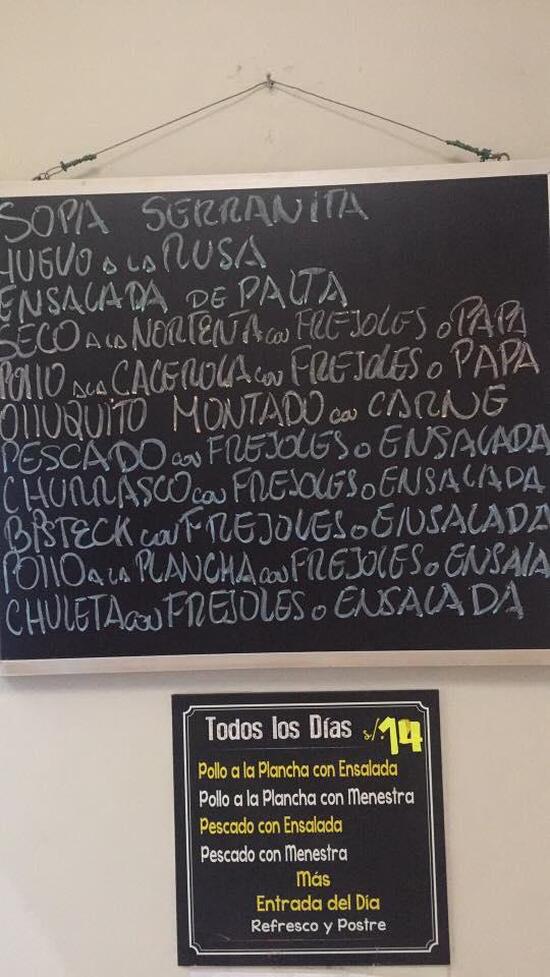 SOPA SERRANITA
HUEVO A LA RUSA
ENSALADA DE PALTA
SECO A LA NORTEÑA con FREJOLES o PAPA
POLLO A LA CACEROLA con FREJOLES o PAPA
OLLUQUITO MONTADO con CARNE
PESCADO con FREJOLES o ENSALADA
CHURRASCO con FREJOLES o ENSALADA
BISTECK con FREJOLES o ENSALADA
POLLO A LA PLANCHA con FREJOLES o ENSALA
CHULETA con FREJOLES o ENSALADA
Todos los Días s/. 14
Pollo a la Plancha con Ensalada
Pollo a la Plancha con Menestra
Pescado con Ensalada
Pescado con Menestra
Más
Entrada del Día
Refresco y Postre